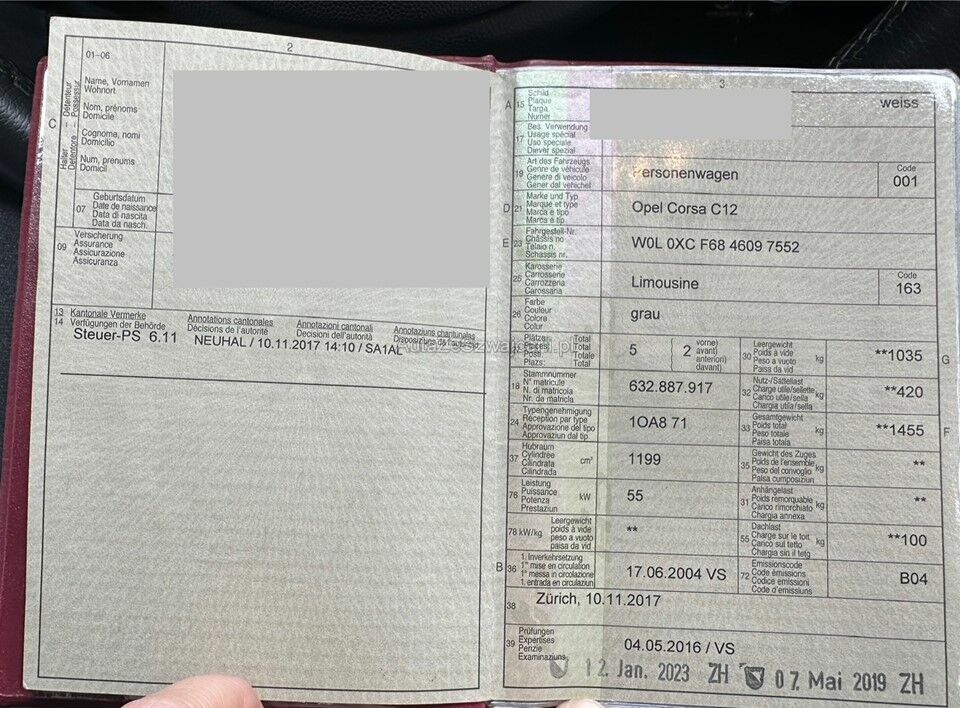 2
01-06
C
Halter Détenteur
Detentore Possessur
Name, Vornamen
Wohnort
Nom, prénoms
Domicile
Cognome, nomi
Domicilio
Num, prenums
Domicil
07
Geburtsdatum
Date de naissance
Data di nascita
Data da nasch.
09
Versicherung
Assurance
Assicurazione
Assicuranza
13 Kantonale Vermerke
14 Verfügungen der Behörde
Annotations cantonales
Décisions de l'autorité
Annotazioni cantonali
Decisioni dell'autorità
Annotaziuns chantunalas
Disposiziuns da l'autoritad
Steuer-PS 6.11 NEUHAL / 10.11.2017 14:10 / SA1AL
3
A 15
Schild
Plaque
Targa
Numer
weiss
17
Bes. Verwendung
Usage spécial
Uso speciale
Diever spezial
19
Art des Fahrzeugs
Genre de véhicule
Genere di veicolo
Gener dal vehichel
Personenwagen
Code
001
D 21
Marke und Typ
Marque et type
Marca e tipo
Marca e tip
Opel Corsa C12
E 23
Fahrgestell-Nr.
Châssis no
Telaio n.
Schassis nr.
W0L 0XC F68 4609 7552
25
Karosserie
Carrosserie
Carrozzeria
Carossaria
Limousine
Code
163
26
Farbe
Couleur
Colore
Colur
grau
27
Plätze: Total
Places: Total
Posti: Totale
Plazs: Total
5
2
vorne)
avant)
anteriori)
davant)
30
Leergewicht
Poids à vide
Peso a vuoto
Paisa da vid
kg
**1035
G
18
Stammnummer
N° matricule
N. di matricola
Nr. da matricla
632.887.917
32
Nutz-/Sattellast
Charge utile/sellette
Carico utile/sella
Chargia utila/sella
kg
**420
24
Typengenehmigung
Réception par type
Approvazione del tipo
Approvaziun dal tip
1OA8 71
33
Gesamtgewicht
Poids total
Peso totale
Paisa totala
kg
**1455
F
37
Hubraum
Cylindrée
Cilindrata
Cilindrada
cm³
1199
35
Gewicht des Zuges
Poids de l'ensemble
Peso del convoglio
Paisa cumposiziun
kg
**
76
Leistung
Puissance
Potenza
Prestaziun
kW
55
31
Anhängelast
Poids remorquable
Carico rimorchiato
Chargia annexa
kg
**
78 kW/kg
Leergewicht
poids à vide
peso a vuoto
paisa da vid
**
55
Dachlast
Charge sur le toit
Carico sul tetto
Chargia sin il tetg
kg
**100
B 36
1. Inverkehrsetzung
1re mise en circulation
1a messa in circolazione
1. entrada en circulaziun
17.06.2004 VS
72
Emissionscode
Code émissions
Codice emissioni
Code d'emissiuns
B04
38
Zürich, 10.11.2017
39
Prüfungen
Expertises
Perizie
Examinaziuns
04.05.2016 / VS
12. Jan. 2023 ZH 07. Mai 2019 ZH